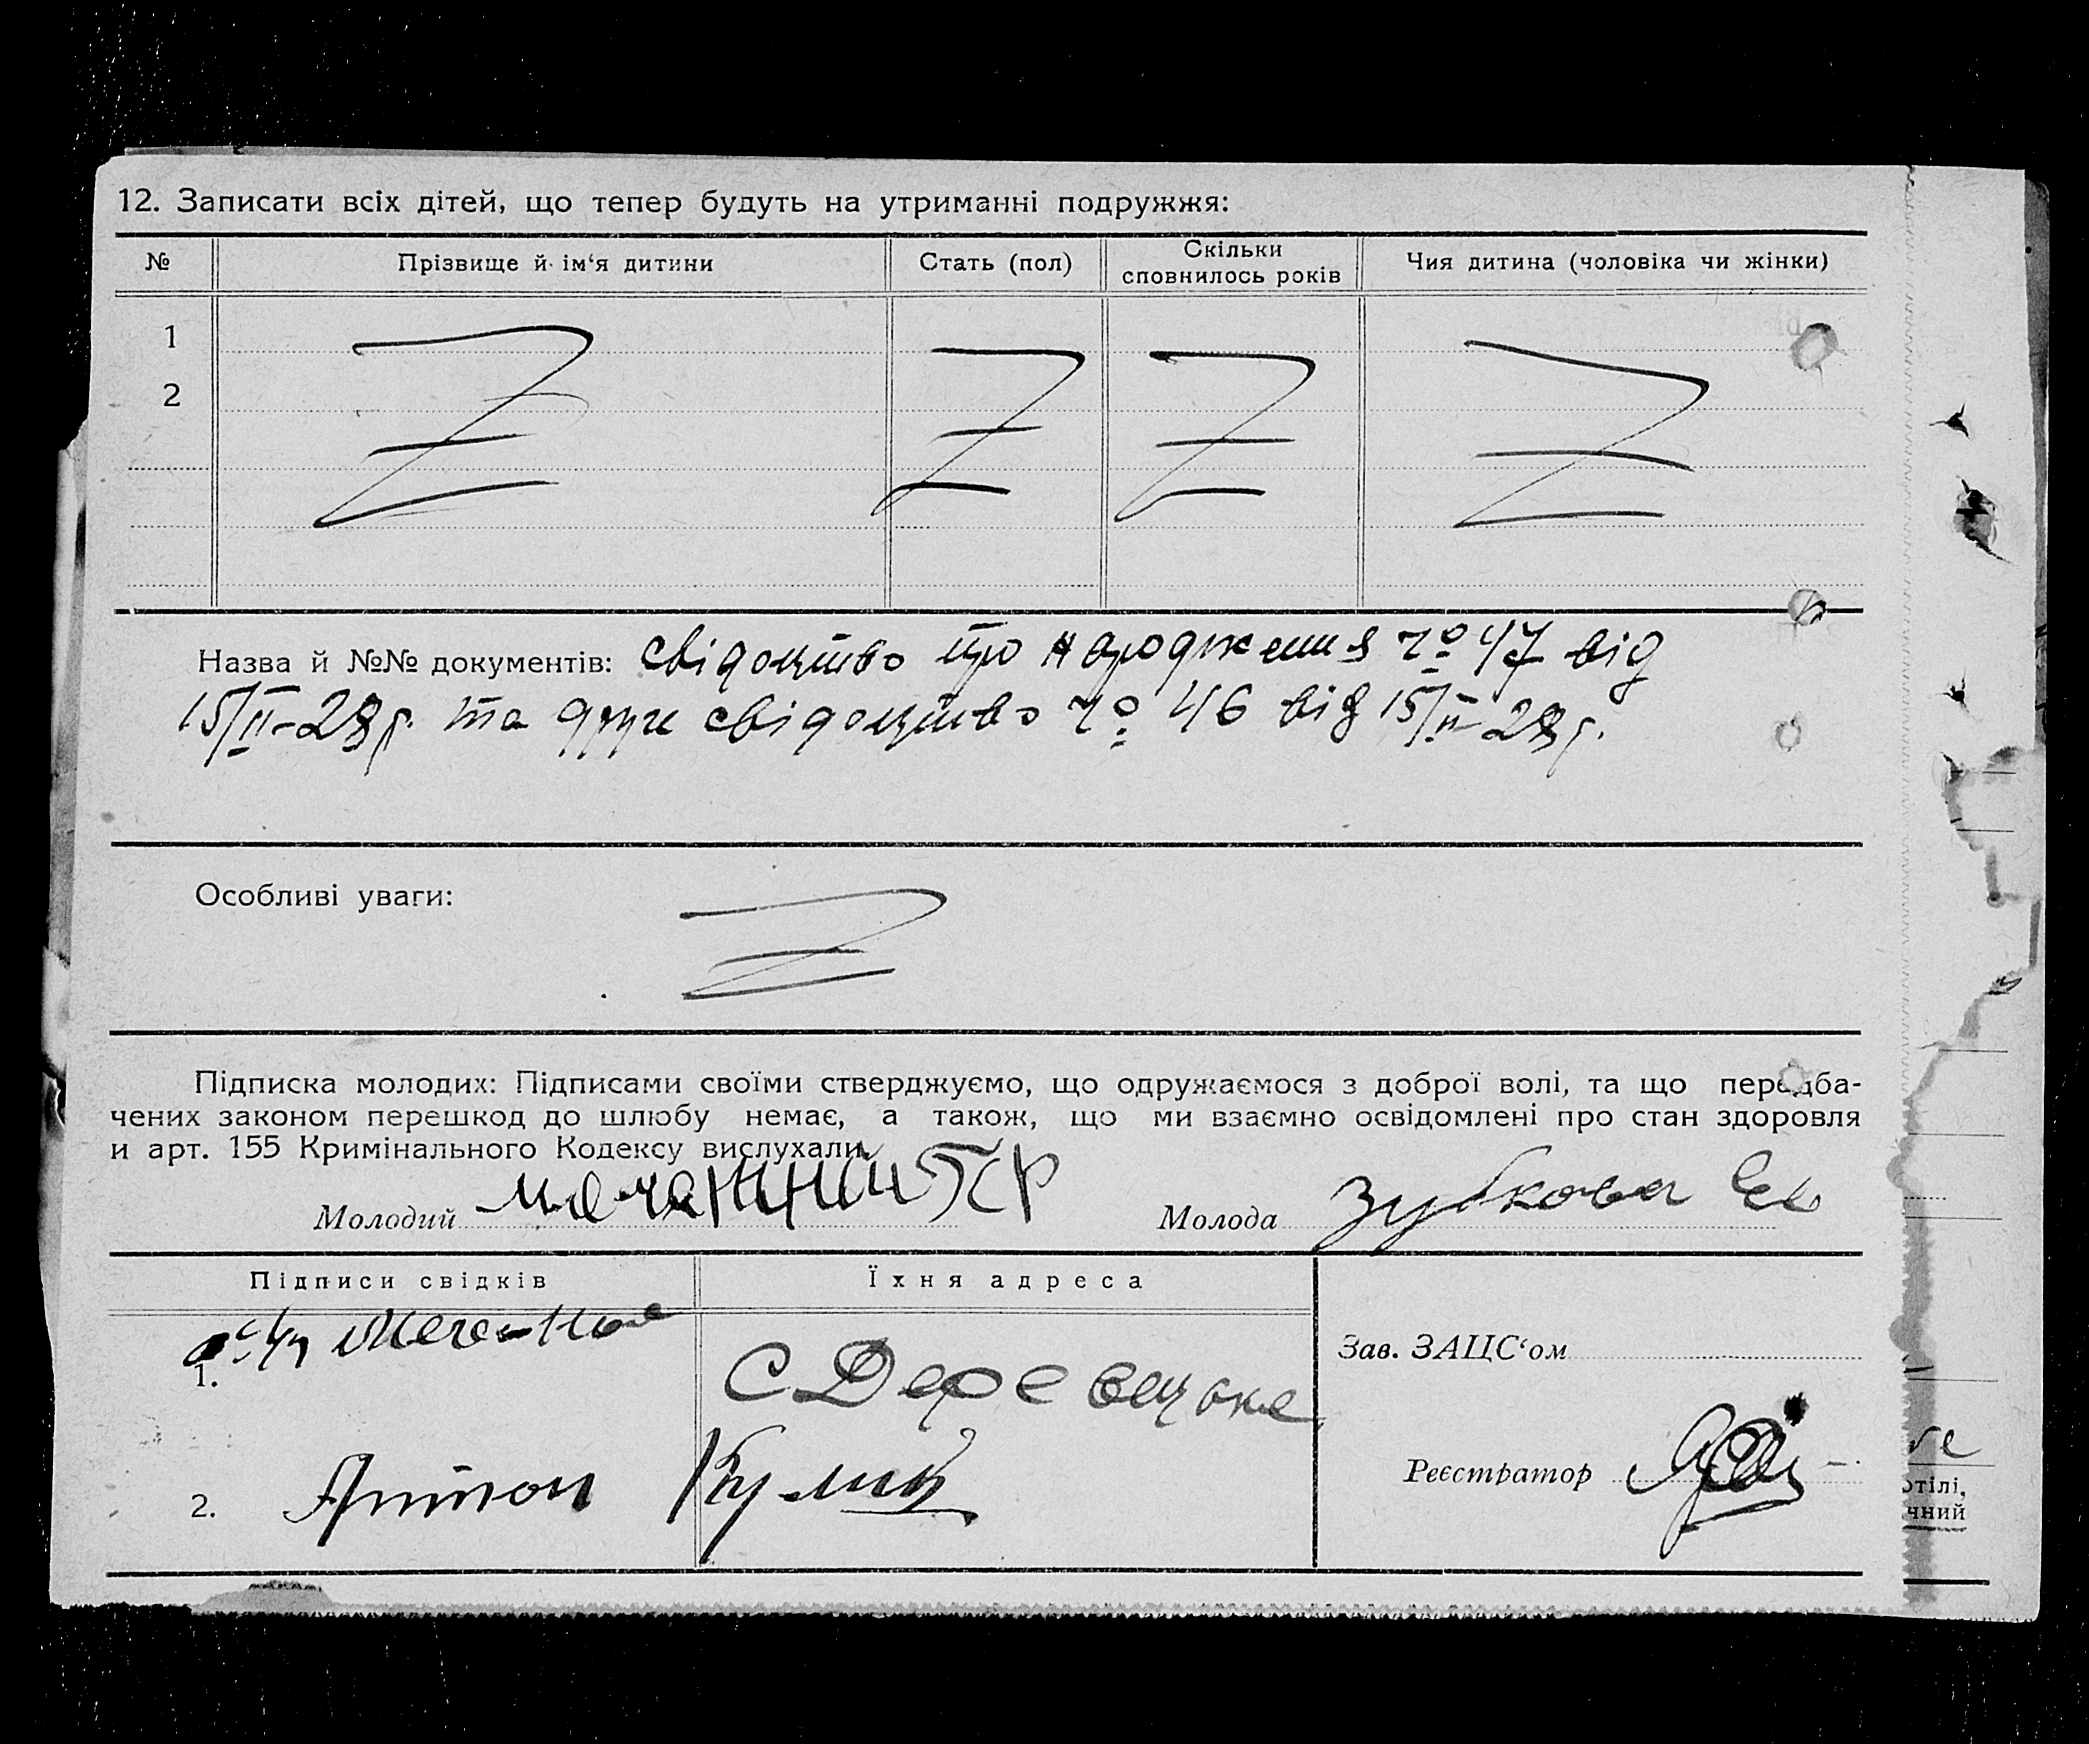 12. Записати всіх дітей, що тепер будуть на утриманні подружжя:
№ Прізвище й ім‘я дитини Стать (пол) Скільки сповнилось років Чия дитина (чоловіка чи жінки)
1
2
Назва й №№ документів: свідоцтво про народження № 47 від
15/II-28 р. та друге свідоцтво № 46 від 15/II-28 р.
Особливі уваги:
Підписка молодих: Підписами своїми стверджуємо, що одружаємося з доброї волі, та що передба-
чених законом перешкод до шлюбу немає, а також, що ми взаємно освідомлені про стан здоровля
и арт. 155 Кримінального Кодексу вислухали.
Молодий Молода Зубкова
Підписи свідків Їхня адреса
1. С Деревецьке
Зав. ЗАЦС‘ом
2. Антон Кулик
Реєстратор
отілі,
чний